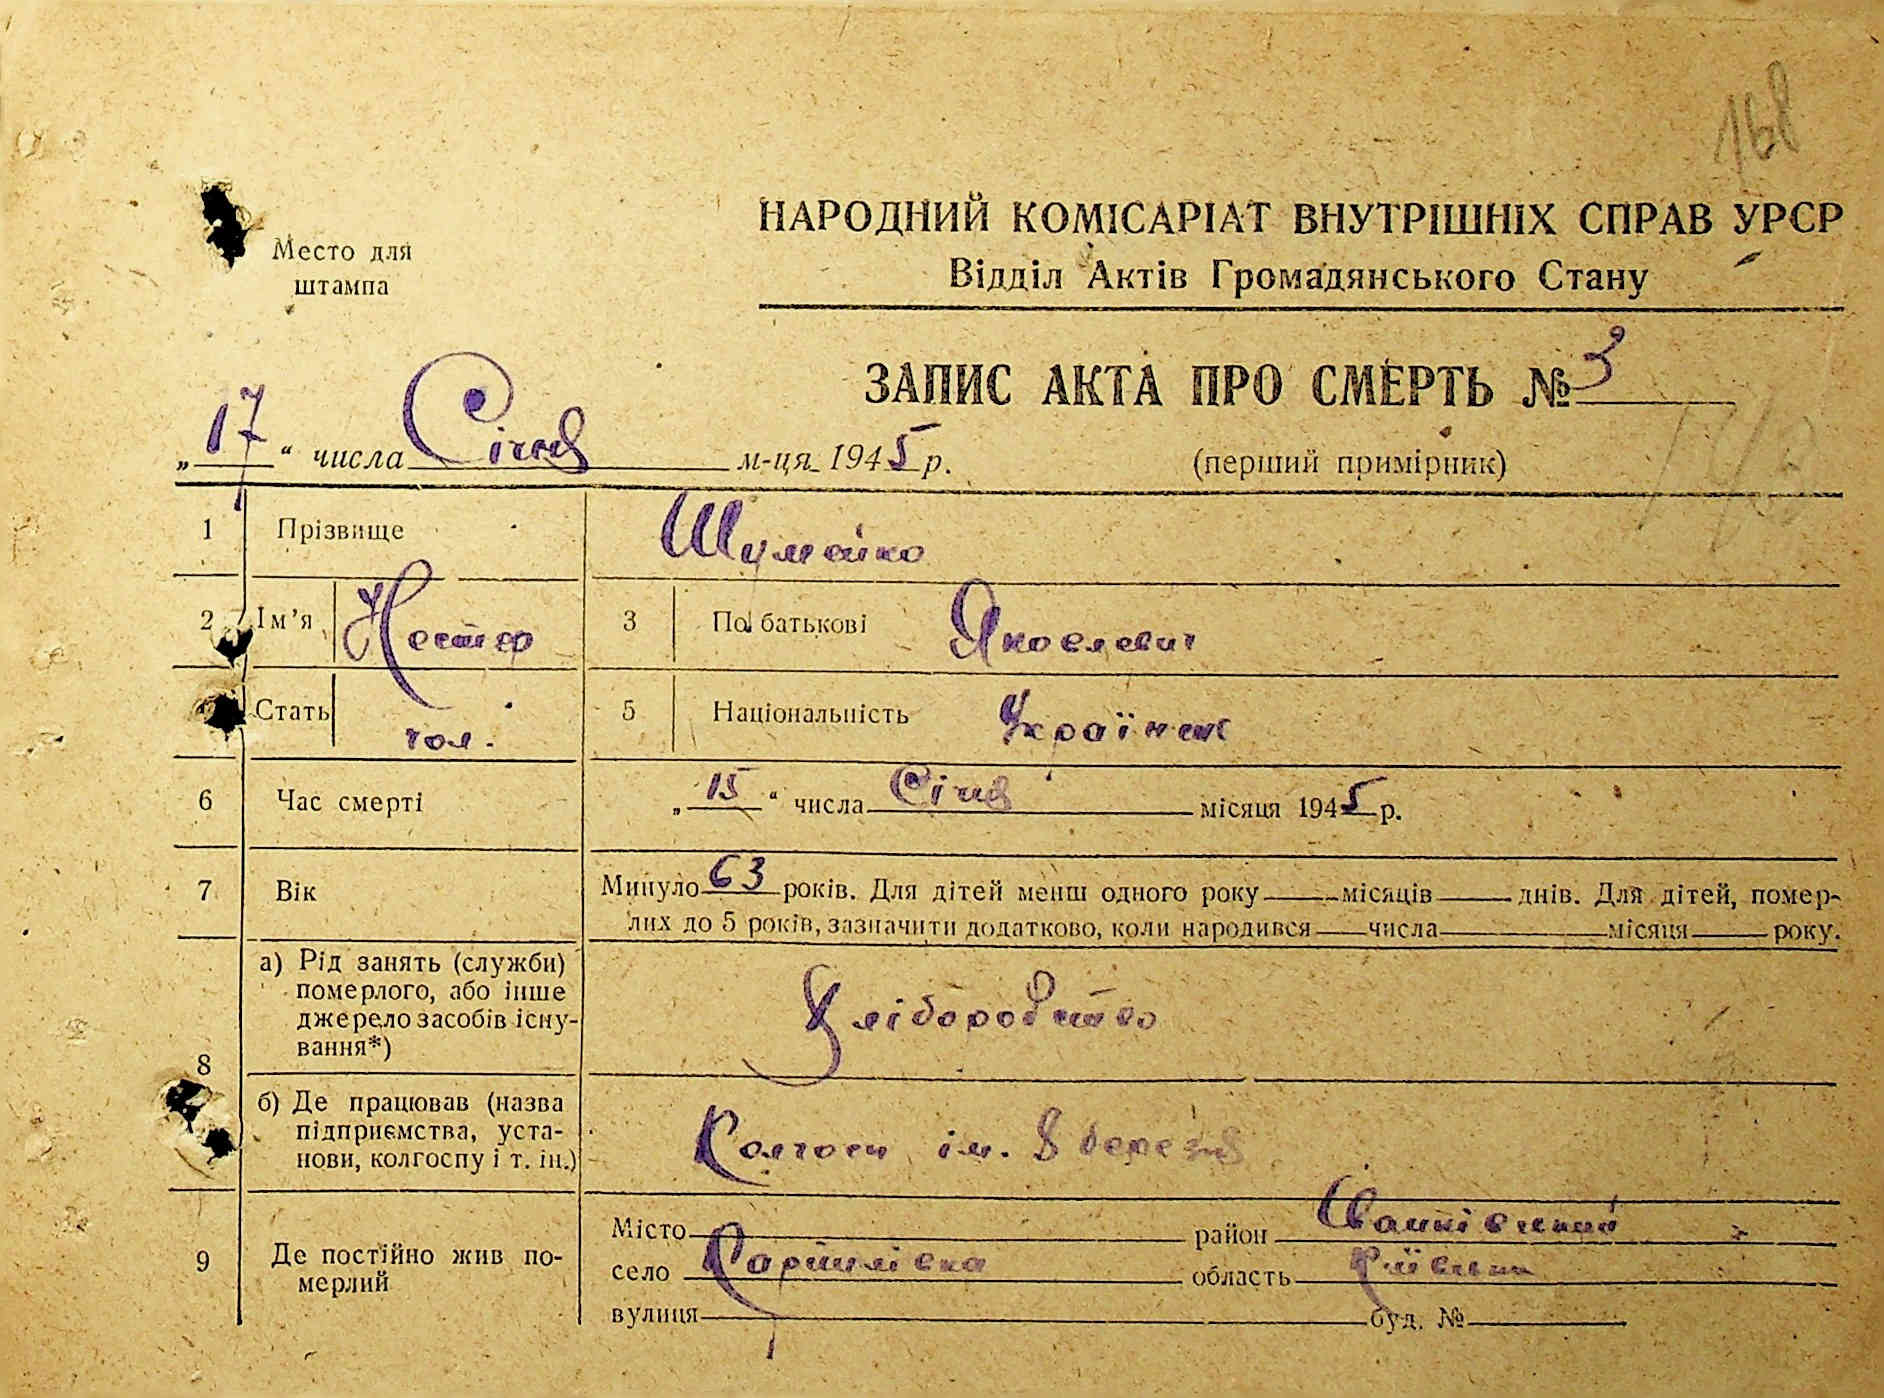 168
НАРОДНИЙ КОМІСАРІАТ ВНУТРІШНІХ СПРАВ УРСР
Место для
штампа
Відділ Актів Громадянського Стану
ЗАПИС АКТА ПРО СМЕРТЬ № 3
„17“ числа Січня м-ця 1945 р.
(перший примірник)
1 Прізвище Шумейко
2 Ім'я Нестер 3 По батькові Яковлевич
Стать чол. 5 Національність Українец
6 Час смерті „15“ числа Січня місяця 1945 р.
7 Вік Минуло 63 років. Для дітей менш одного року місяців днів. Для дітей, помер-
лих до 5 років, зазначити додатково, коли народився числа місяця року.
8
а) Рід занять (служби)
померлого, або інше
джерело засобів існу-
вання*)
Хліборобство
б) Де працював (назва
підприємства, уста-
нови, колгоспу і т. ін.)
Колгосп ім. 8 березня
9 Де постійно жив по-
мерлий
Місто район Іванківський
село область Київська
вулиця буд. №